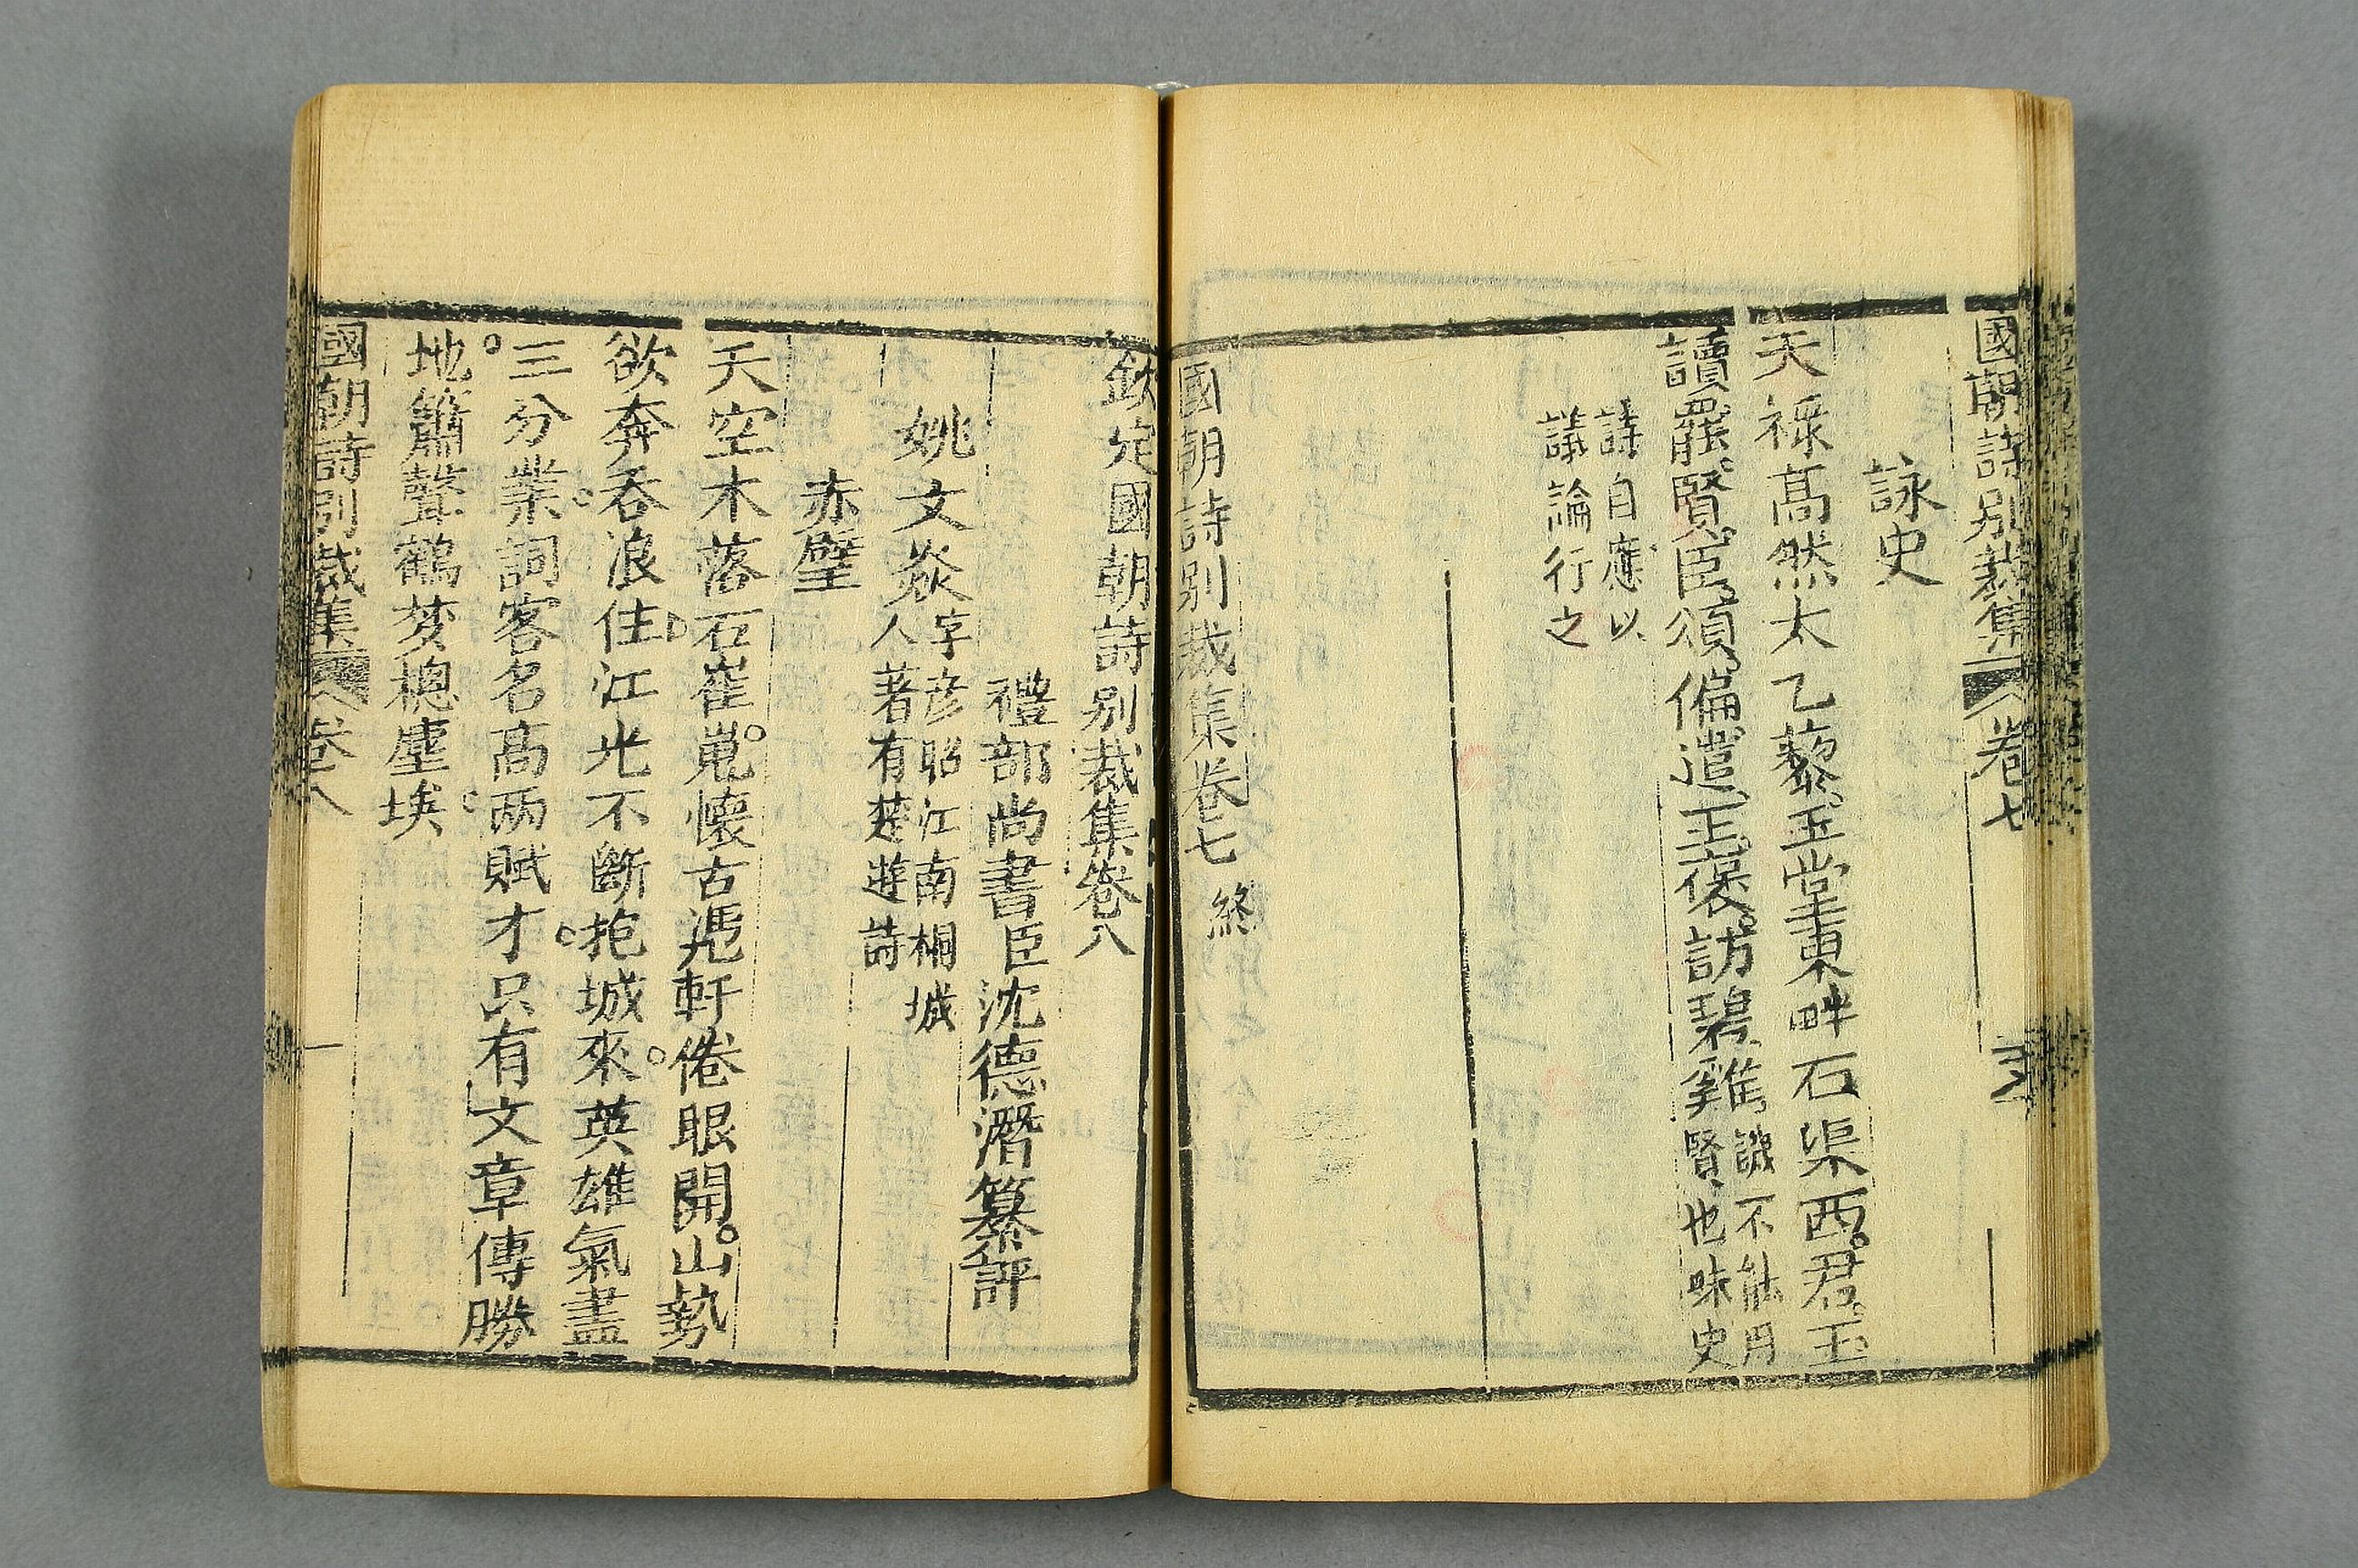 國朝詩別裁集 卷七
詠史
天祿高然太乙藜玉堂東畔石渠西。君王
讀罷賢臣頌偏遣王褒。訪碧雞
譏不能用
賢也味史
詩自應以
議論行之
國朝詩別裁集卷七 終
欽定國朝詩別裁集卷八
禮部尚書臣沈德潛纂評
姚文焱
字彥昭江南桐城
人著有楚遊詩
赤壁
天空木落石崔嵬。懷古憑軒倦眼開。山勢
欲奔吞浪住江光不斷抱城來。英雄氣盡
三分業詞客名高兩賦才。只有文章傳勝
地簫聲鶴夢總塵埃
國朝詩別裁集 卷八 一